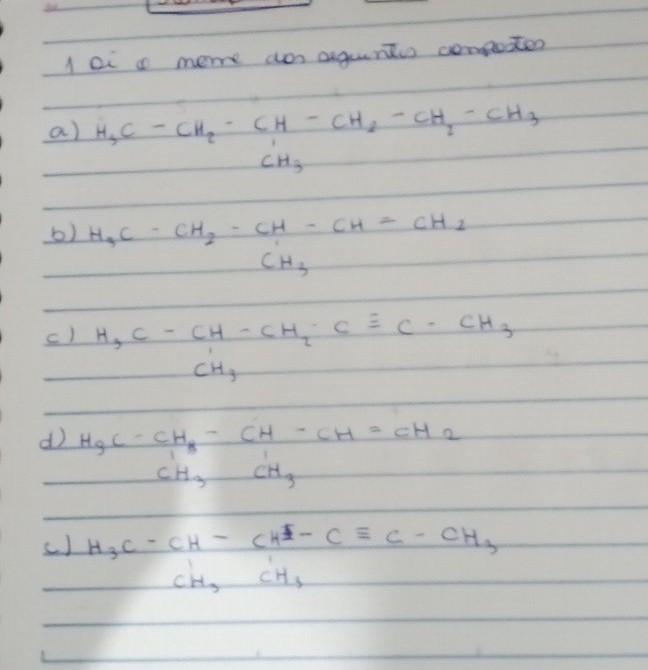 1 Di o nome dos seguintes compostos
a) H3C - CH2 - CH - CH2 - CH2 - CH3
CH3
b) H3C - CH2 - CH - CH = CH2
CH3
c) H3C - CH - CH2 - C ≡ C - CH3
CH3
d) H3C - CH - CH - CH = CH2
CH3 CH3
c) H3C - CH - CH - C ≡ C - CH3
CH3 CH3